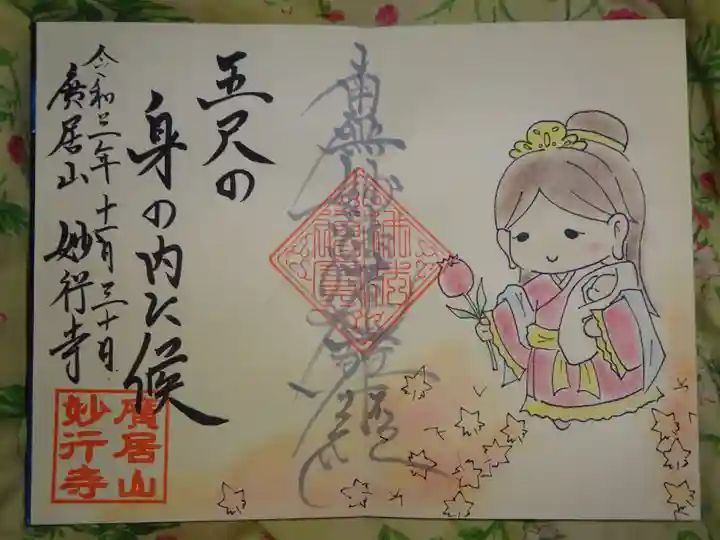 南無妙法蓮華経
五尺の
身の内に候
令和三年十一月三十日
廣居山 妙行寺
廣居山
妙行寺